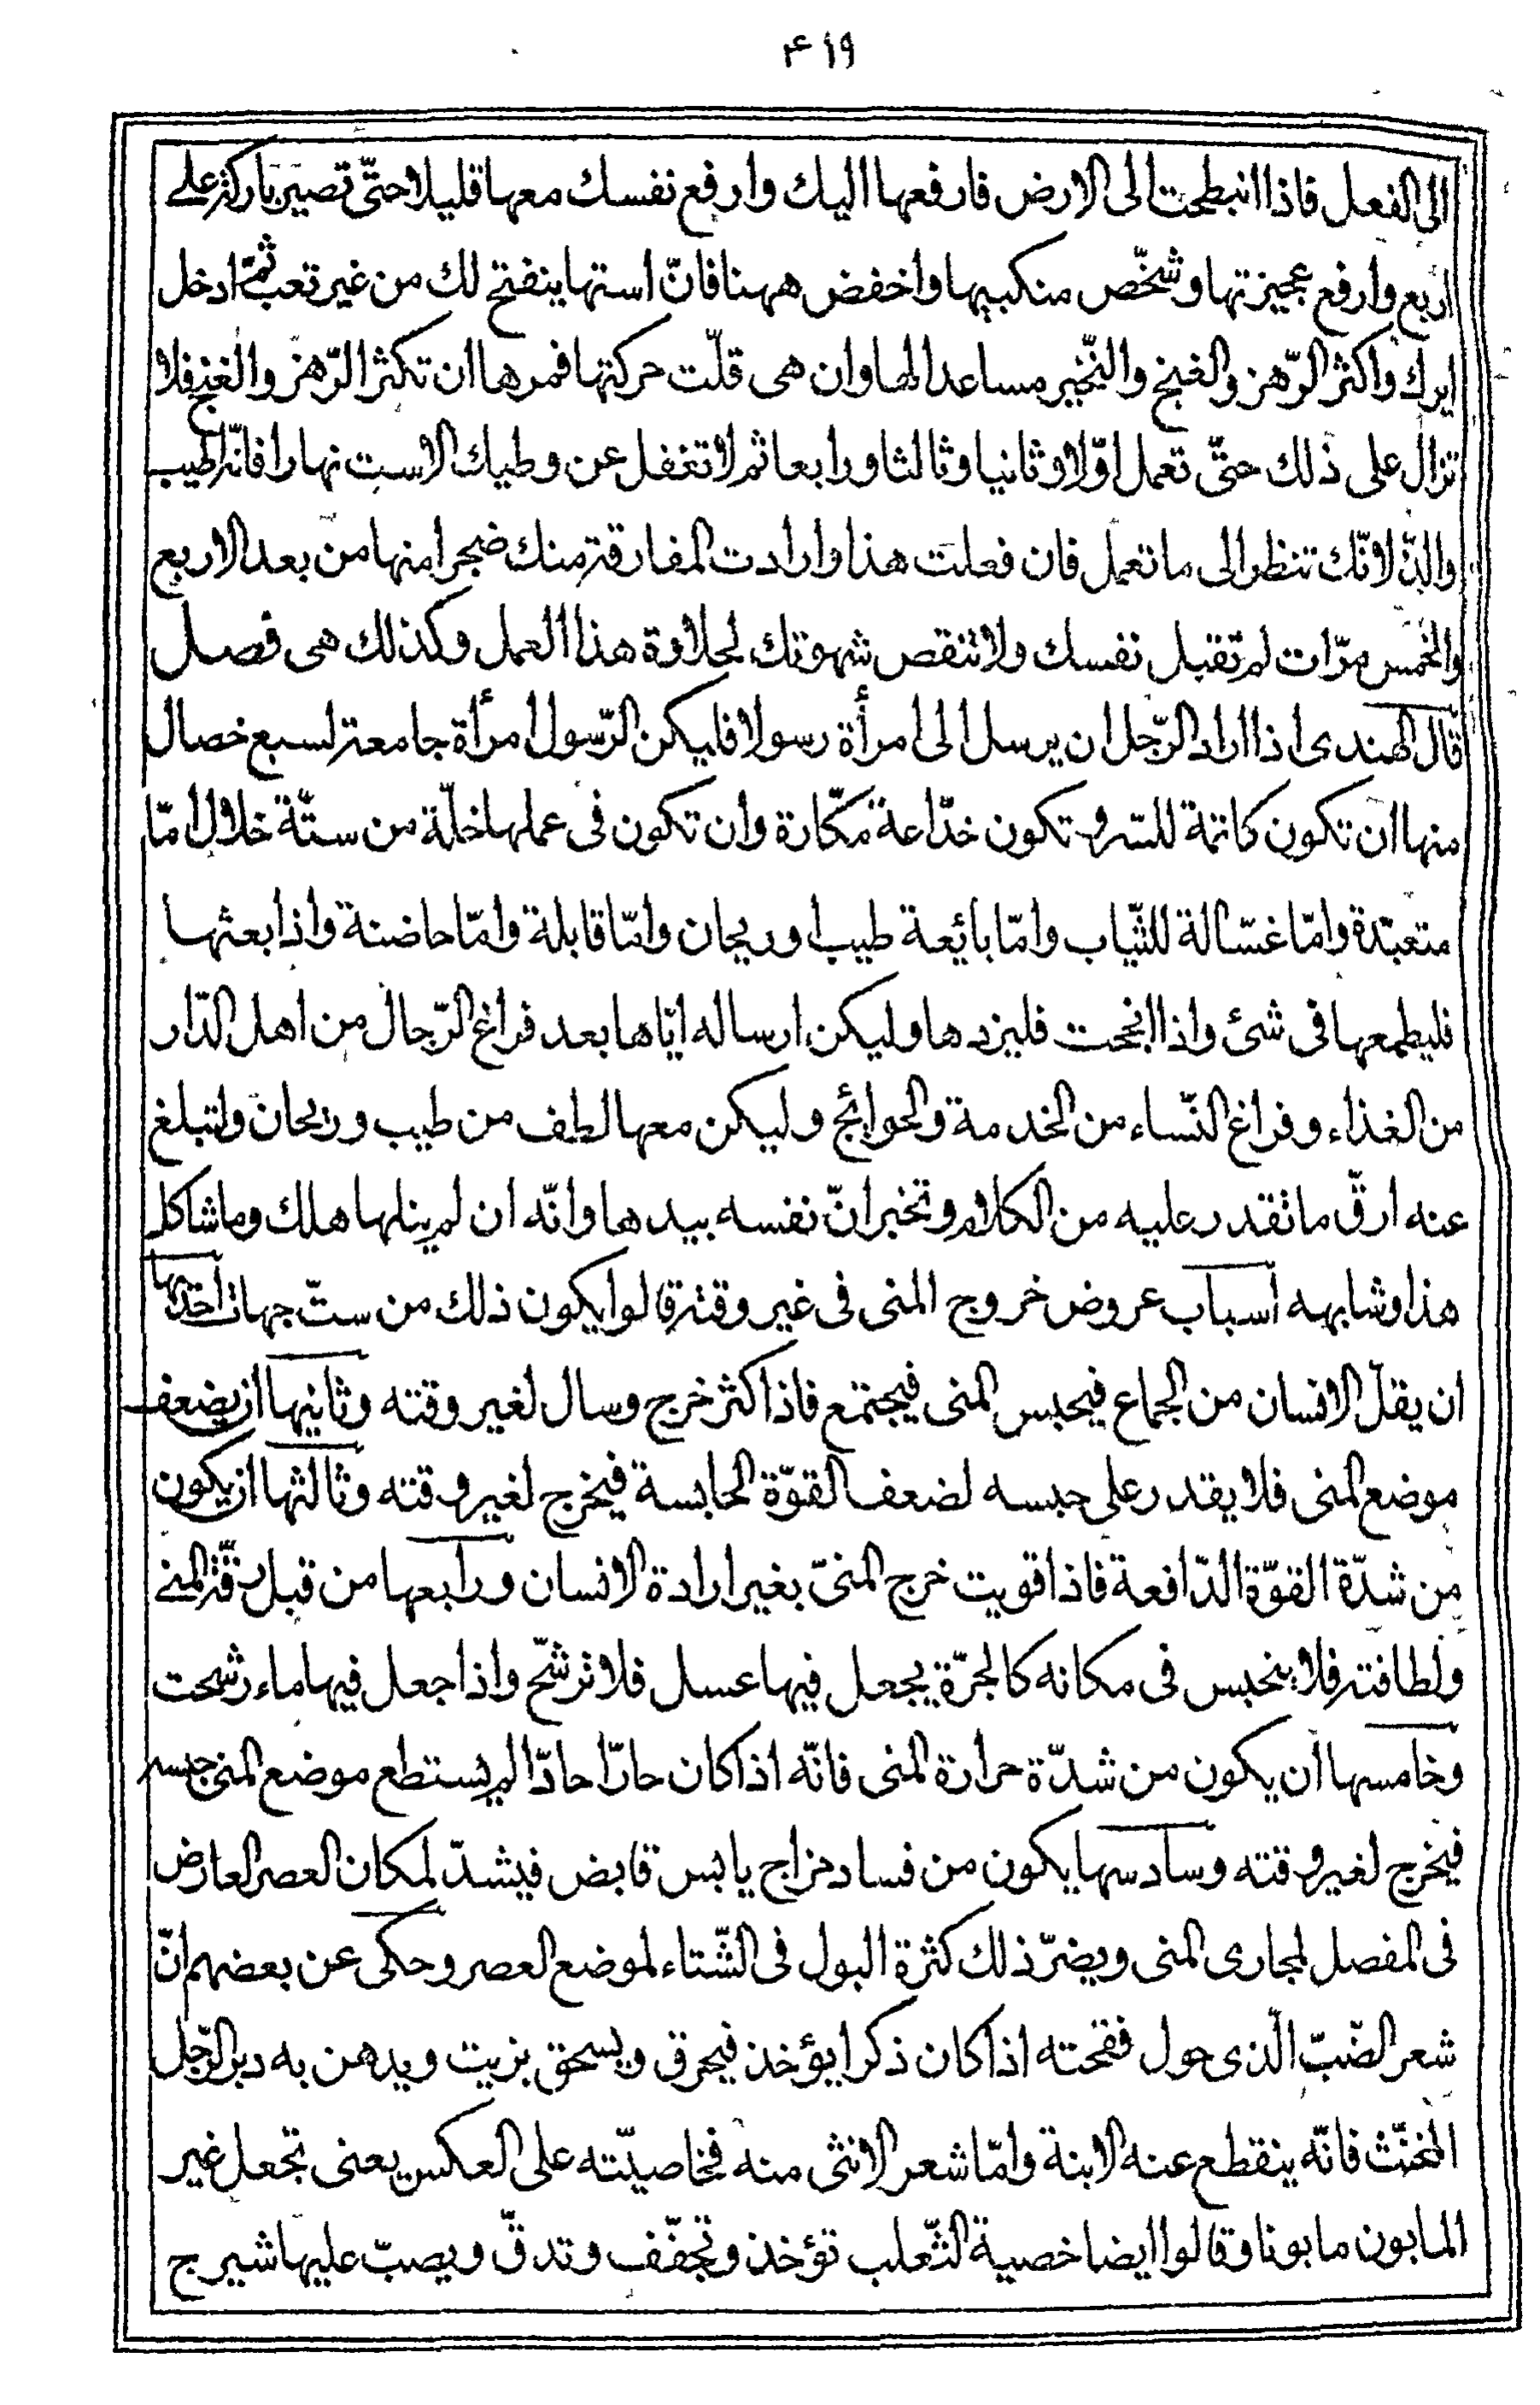 ٤١٩
الى الفعل فاذا انبطحت الى الارض فارفعها اليك وارفع نفسك معها قليلا حتّى تصير باركة على
اربع وارفع عجيزتها وشخّص منكبيها واخفض ههنا فانّ استها ينفتح لك من غير تعب ثمّ ادخل
ايرك واكثر الرّهز والغنج والنّخير مساعدا لها وان هى قلّت حركتها فمرها ان تكثر الرّهز والغنج فلا
تزال على ذلك حتّى تعمل اوّلا وثانيا وثالثا ورابعا ثم لا تغفل عن وطيك الاست نهارا فانّه اطيب
والذّ لانّك تنظر الى ما تعمل فان فعلت هذا وارادت المفارقة منك ضجرا منها من بعد الاربع
والخمس مرّات لم تقبل نفسك ولا تنقص شهوتك لحلاوة هذا العمل وكذلك هى فصل
قال الهندى اذا اراد الرّجل ان يرسل الى امرأة رسولا فليكن الرّسول امرأة جامعة لسبع خصال
منها ان تكون كاتمة للسّر وتكون خدّاعة مكّارة وان تكون فى عملها خلّة من ستّة خلال امّا
متعبّدة وامّا غسّالة للثّياب وامّا بائعة طيب او ريحان وامّا قابلة وامّا حاضنة واذا بعثها
فليطمعها فى شئ واذا انجحت فليزدها وليكن ارساله ايّاها بعد فراغ الرّجال من اهل الدّار
من الغذاء وفراغ النّساء من الخدمة والحوائج وليكن معها لطف من طيب وريحان ولتبلغ
عنه ارقّ ما تقدر عليه من الكلام وتخبر انّ نفسه بيدها وانّه ان لم ينلها هلك وما شاكل
هذا وشابهه اسباب عروض خروج المنى فى غير وقته قالوا يكون ذلك من ستّ جهات احدها
ان يقلّ الانسان من الجماع فيحبس المنى فيجتمع فاذا كثر خرج وسال لغير وقته وثانيها ان يضعف
موضع المنى فلا يقدر على حبسه لضعف القوّة الحابسة فيخرج لغير وقته وثالثها ان يكون
من شدّة القوّة الدّافعة فاذا قويت خرج المنىّ بغير ارادة الانسان ورابعها من قبل رقّة المنى
ولطافته فلا ينحبس فى مكانه كالجرّة يجعل فيها عسل فلا ترشّح واذا جعل فيها ماء رشحت
وخامسها ان يكون من شدّة حرارة المنى فانّه اذا كان حارّا حادّا لم يستطع موضع المنى حبسه
فيخرج لغير وقته وسادسها يكون من فساد مزاج يابس قابض فيشدّ لمكان العصر العارض
فى المفصل لمجارى المنى ويضرّ ذلك كثرة البول فى الشّتاء لموضع العصر وحكى عن بعضهم انّ
شعر الضّبّ الّذى حول فقحته اذا كان ذكرا يؤخذ فيحرق ويسحق بزيت ويدهن به دبر الرّجل
المخنّث فانّه ينقطع عنه الابنة وامّا شعر الانثى منه فخاصيّته على العكس يعنى تجعل غير
المابون مابونا وقالوا ايضا خصية الثّعلب تؤخذ وتجفّف وتدقّ ويصبّ عليها شيرج